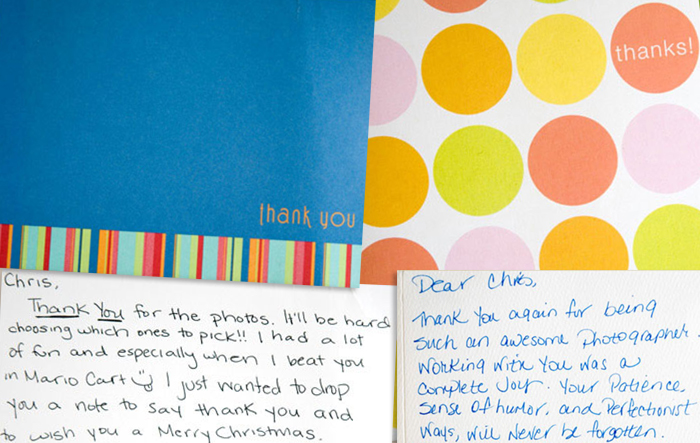 thank you
thanks!
Chris,
Thank You for the photos. It'll be hard
choosing which ones to pick!! I had a lot
of fun and especially when I beat you
in Mario Cart I just wanted to drop
you a note to say thank you and
to wish you a Merry Christmas.
Dear Chris,
Thank You again for being
such an awesome Photographer.
Working with You was a
complete Joy. Your Patience,
sense of humor, and Perfectionist
ways, will never be forgotten.